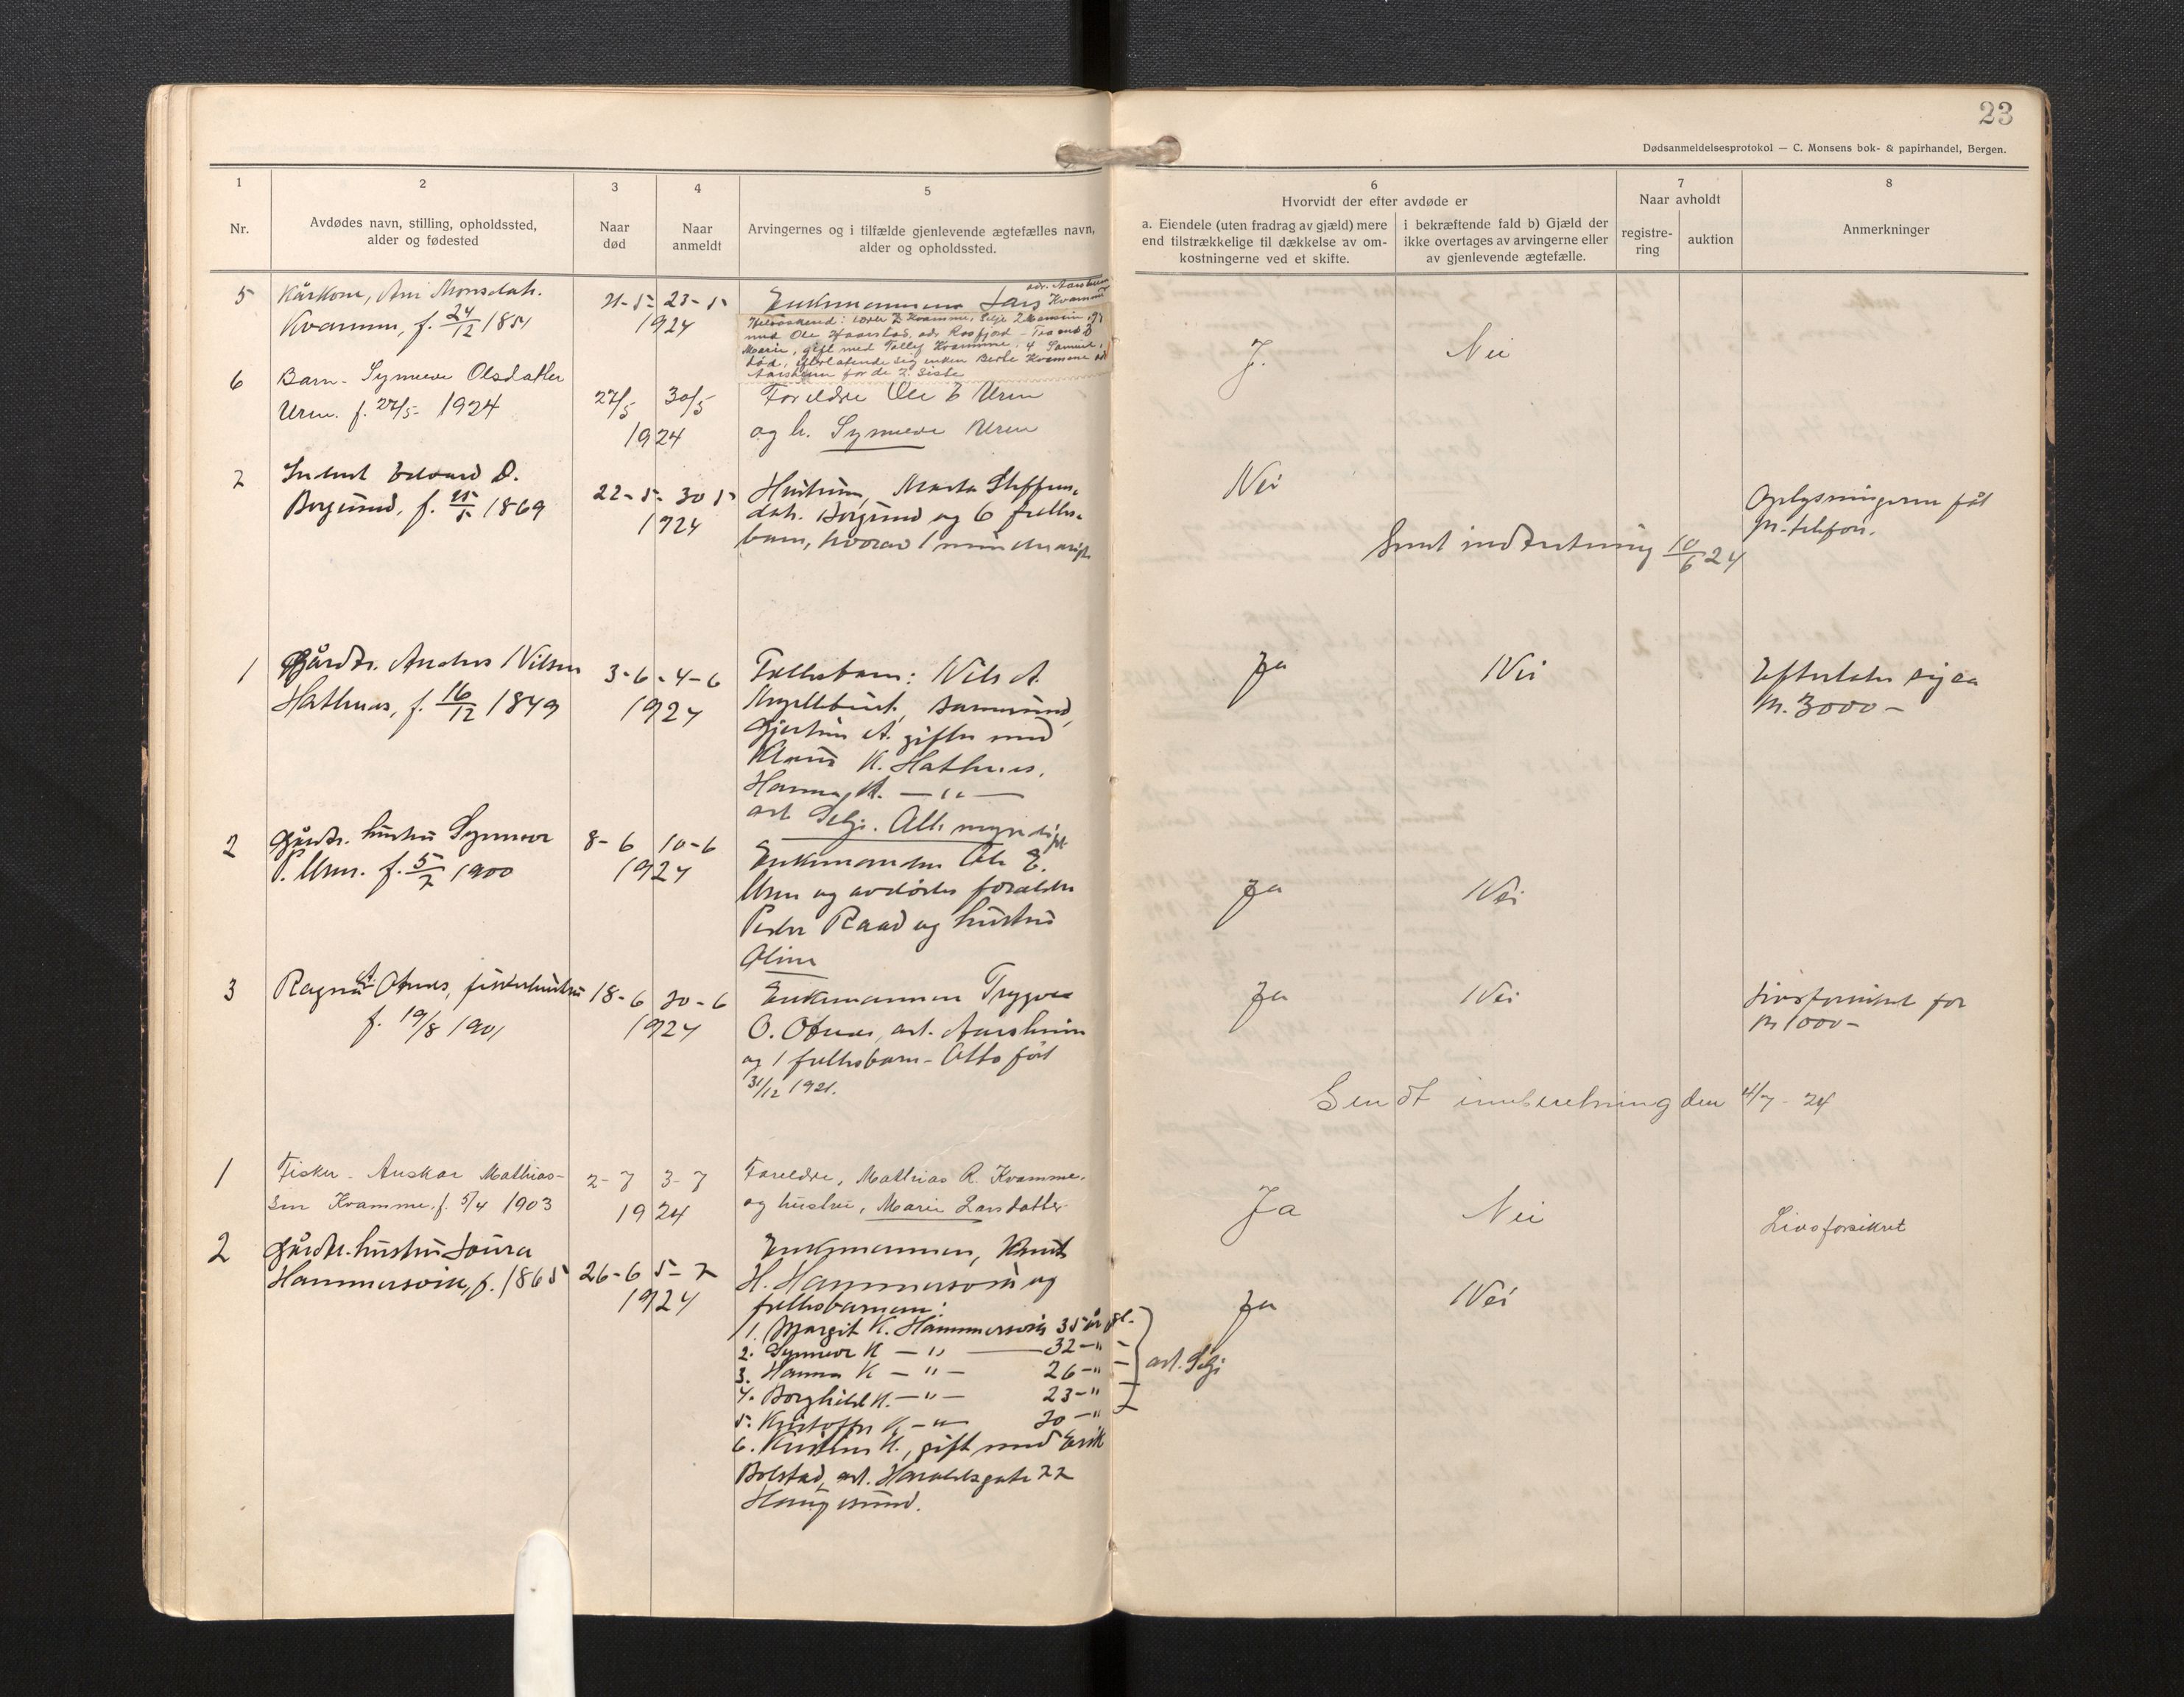 23
Dødsanmeldelsesprotokol — C. Monsens bok- & papirhandel, Bergen.
1
Nr.
2
Avdødes navn, stilling, opholdssted,
alder og fødested
3
Naar
død
4
Naar
anmeldt
5
Arvingernes og i tilfælde gjenlevende ægtefælles navn,
alder og opholdssted.
6
Hvorvidt der efter avdøde er
a. Eiendele (uten fradrag av gjæld) mere
end tilstrækkelige til dækkelse av om-
kostningerne ved et skifte.
i bekræftende fald b) Gjæld der
ikke overtages av arvingerne eller
av gjenlevende ægtefælle.
7
Naar avholdt
registre-
ring
auktion
8
Anmerkninger
5 Kårkone, Ani Monsdatr.
Kvamme, f. 24/12 1851
21-5- 23-5
1924
adr. Aarsheim
Enkemannen Lars Kvamme
Marie, gift med Tollef Kvamme. 4
død, efterlatende sig enken Berte Kvamme adr
Aarsheim for de 2 siste
J. Nei
6 Barn- Synneve Olsdatter
Uren. f. 27/5- 1924
27/5 30/5
1924
Foreldre Ole E Uren
og h. Synneve Uren
7 Edvard D.
Borgund, f. 25/5 1869
22-5- 30 5
1924
Hustru, Marta Steffens-
datr. Borgund og 6 felles-
barn, hvorav 1 mindreårig
Nei
Oplysningerne fåt
pr. telefon.
Sendt indberetning 10/6 24
1 Gårdbr. Anders Nilsen
Hatlenes, f. 16/12 1849
3-6- 4-6
1924
Fellesbarn: Nils A.
gift med
K. Hatlenes,
Hanna A. — " —
adr. Selje. Alle myndige
Ja Nei
Efterlater sig ca
kr. 3000-
2 Gårdbr. hustru Synneve
P. Uren. f. 5/7 1900
8-6 10-6
1924
Enkemanden Ole E.
Uren og avdødes foreldre
Peder Raad og hustru
Oline
Ja Nei
3 Ragna A. Otnes, fiskerhustru
f. 19/8 1901
18-6 20-6
1924
Enkemannen Trygve
O. Otnes, adr. Aarsheim
og 1 fellesbarn- Otto født
31/12 1921.
Ja Nei
Livsforsikret for
kr 1000-
Sendt innberetning den 4/7- 24
1 Fisker- Anskar Mathias-
sen Kvamme. f. 5/4 1903
2-7 3-7
1924
Foreldre, Mathias R. Kvamme.
og hustru, Marie Larsdatter
Ja Nei
Livsforsikret
2 Gårdbr. hustru Loura
Hammersvik, f. 1865
26-6 5-7
1924
Enkemannen, Knut
H. Hammersvik og
fellesbarnene:
1. Margit K. Hammersvik 35 år gl.
2. Synneve K — " — 32 - " -
3. Hanna K — " — 26 - " -
4. Borghild K. — " — 23 - "
5. Kristoffer K. — " — 20 - " -
adr. Selje
6. Kristine K., gift med Erik
Bolstad, adr. Haraldsgate 77
Haugesund.
Ja Nei